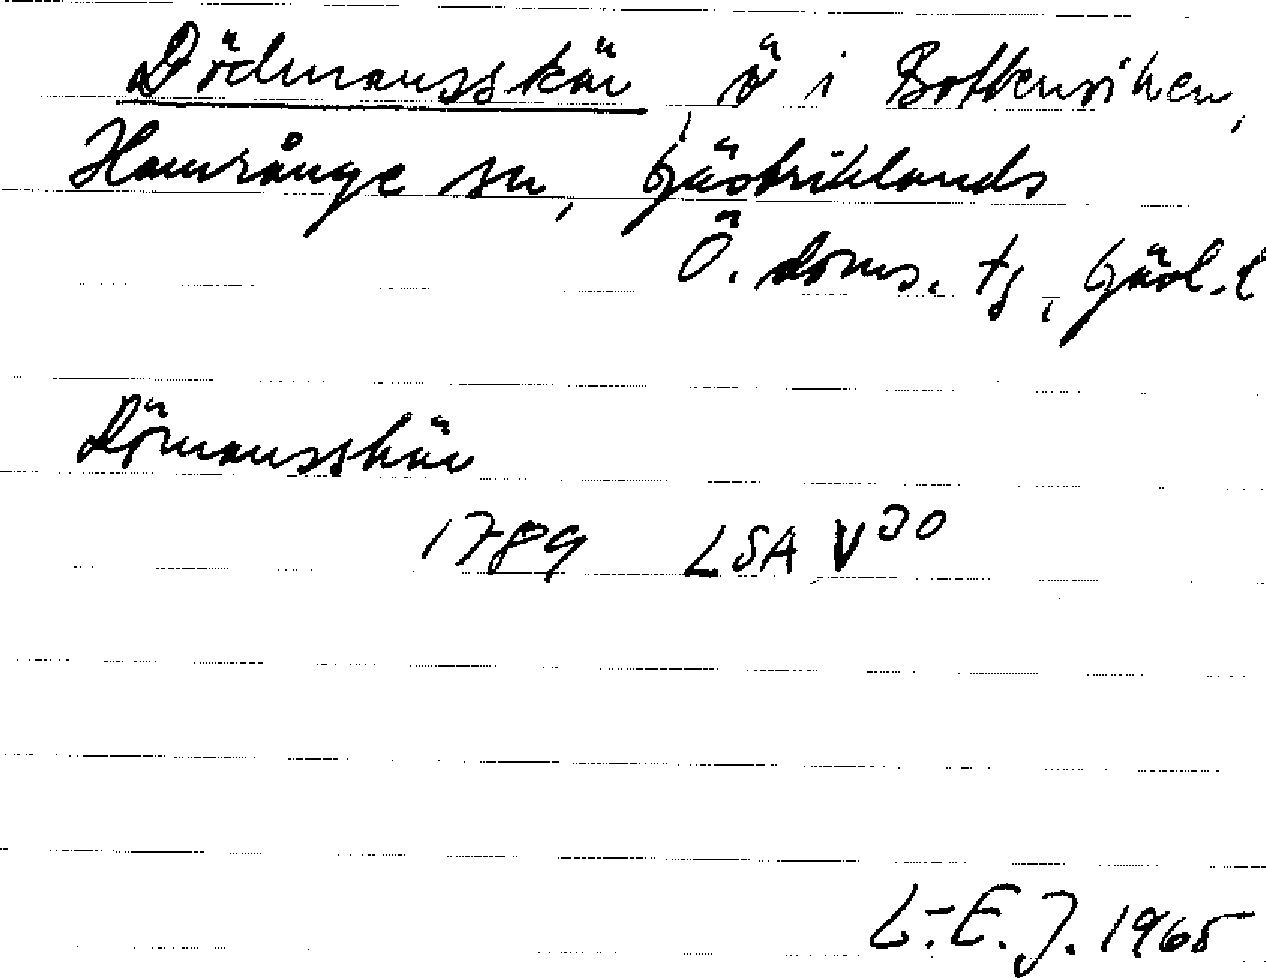 Dödmansskär, ö i Bottenviken,
Hamrånge sn, Gästriklands
Ö. doms. tg, Gävl. l
Dömansskär
1789 LSA V30
L.-E. J. 1965